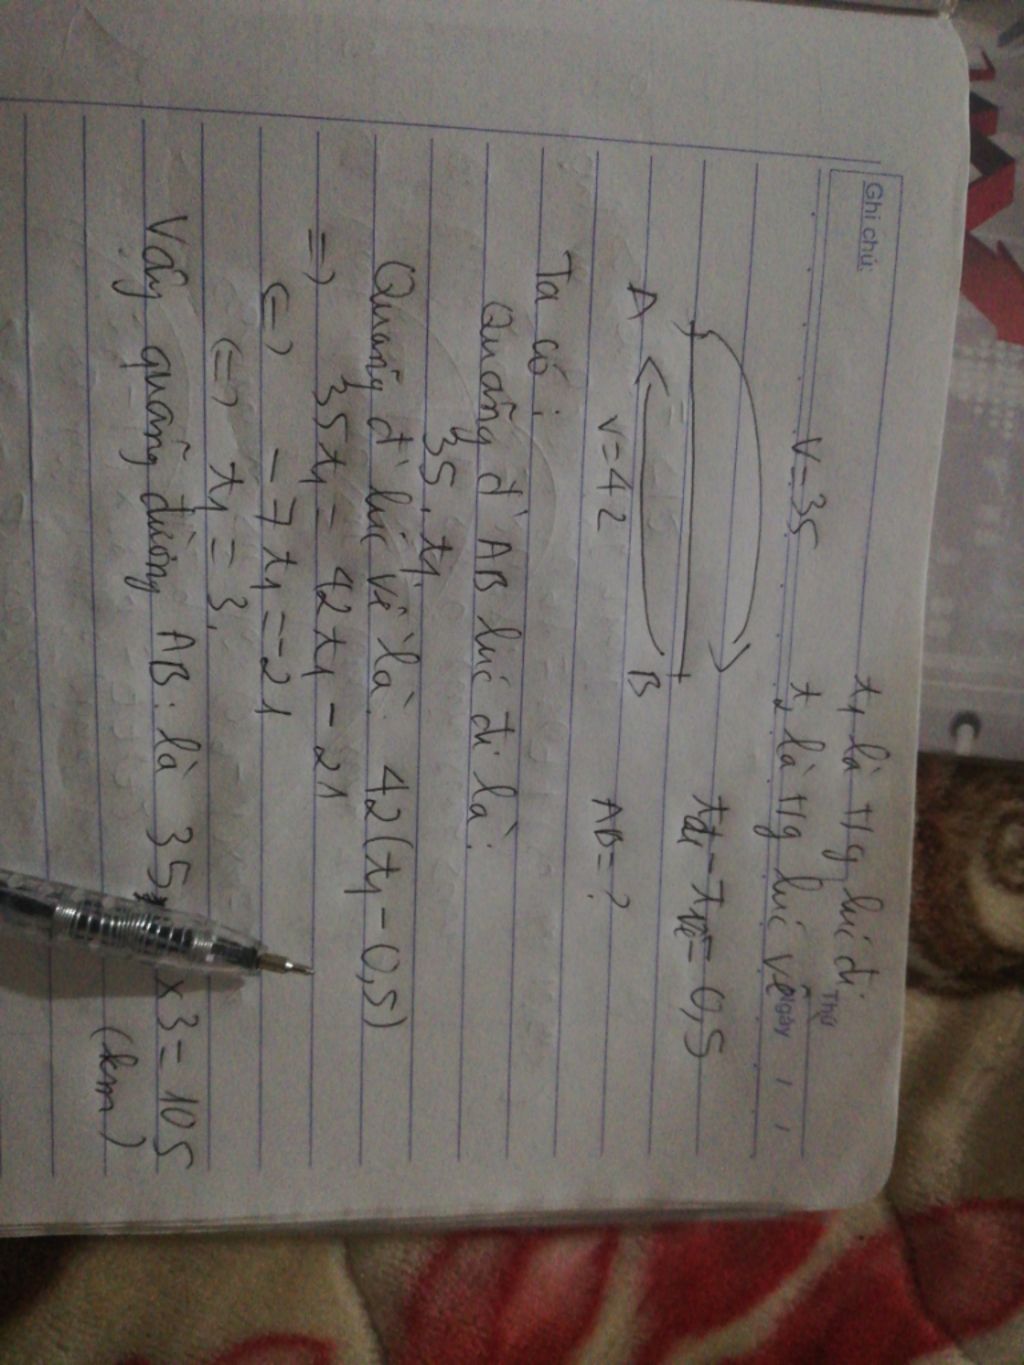 Ghi chú:
Thứ
Ngày
t1 là Tlg lúc đi
V=35 t2 là Tlg lúc về
tđi - tvề = 0,5
A B
v=42 AB=?
Ta có:
Quãng đ AB lúc đi là:
35.t1
Quãng đ lúc về là: 42(t1-0,5)
=> 35t1 = 42t1 - 21
<=> -7t1 = -21
<=> t1 = 3
Vậy quãng đường AB là 35 x 3 = 105
(km)